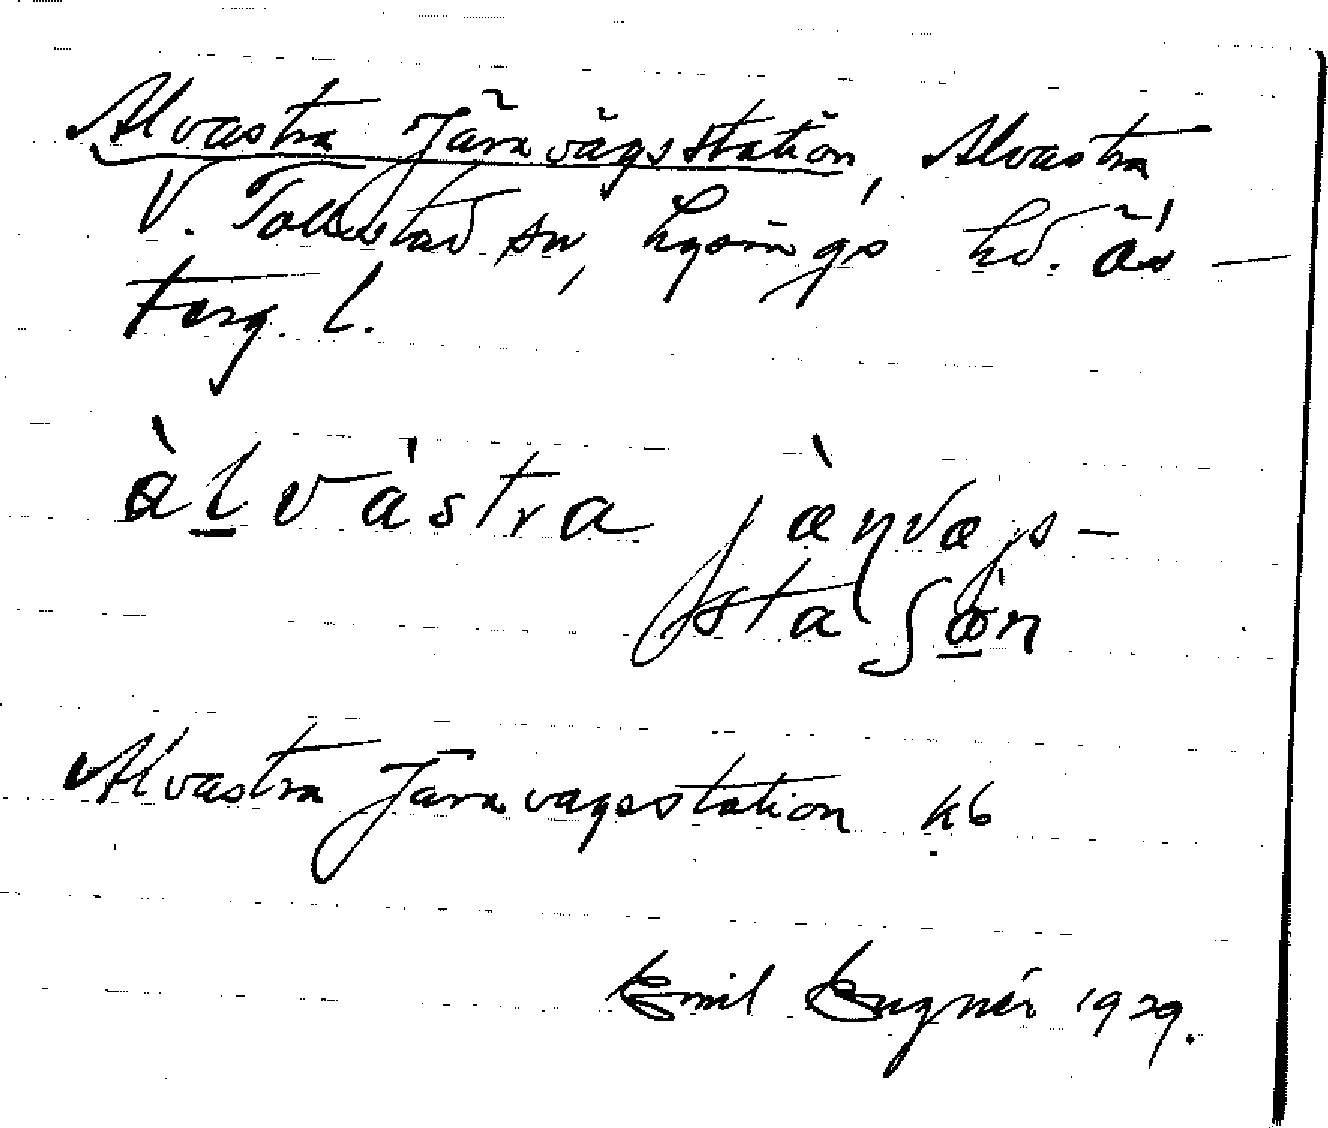 Alvastra Järnvägsstation, Alvastra
V. Tollstad sn, Lysings hd. Ös-
terg. l.
àl̲vàstra jæ̀ɳvæjs-
staʃὼ̲n
Alvastra Järnvägsstation kb
Emil 1929.